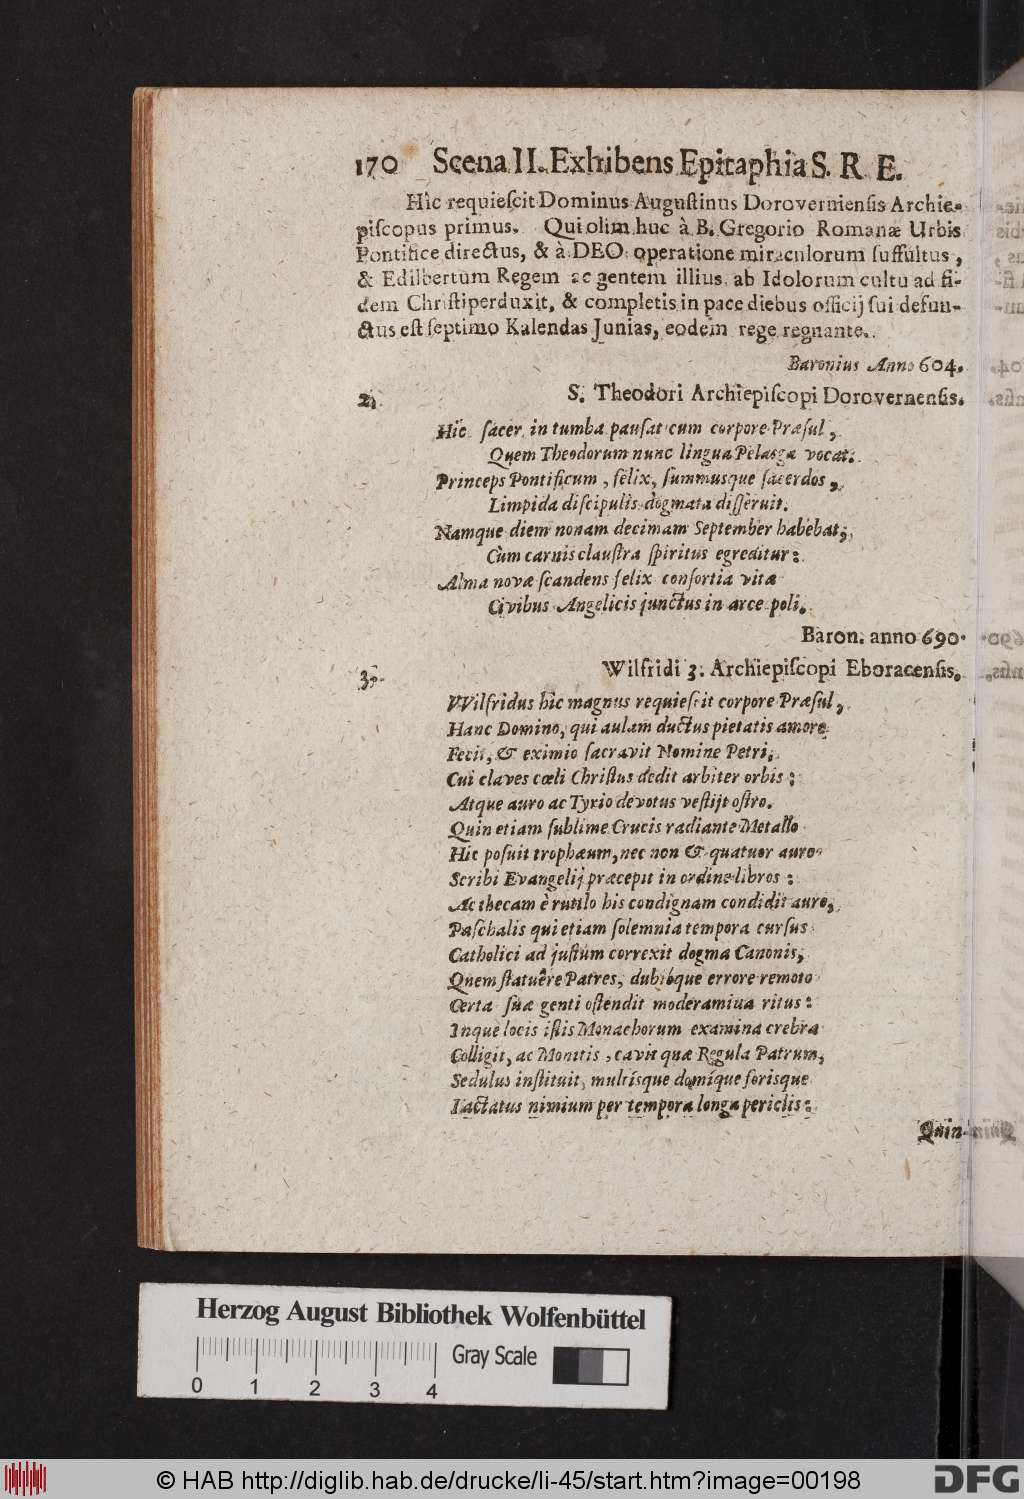 170 Scena II. Exhibens Epitaphia S. R. E.
Hic requieſcit Dominus Auguſtinus Dorovernienſis Archie-
piſcopus primus. Qui olim huc à B. Gregorio Romanæ Urbis
Pontifice directus, & à DEO operatione miraculorum ſuffultus,
& Edilbertum Regem ac gentem illius ab Idolorum cultu ad fi-
dem Chriſti perduxit, & completis in pace diebus officij ſui defun-
ctus eſt ſeptimo Kalendas Junias, eodem rege regnante.
Baronius Anno 604.
2. S. Theodori Archiepiſcopi Dorovernenſis.
Hic ſacer in tumba pauſat cum corpore Præſul,
Quem Theodorum nunc lingua Pelasga vocat.
Princeps Pontificum, felix, ſummusque ſacerdos,
Limpida diſcipulis dogmata diſſeruit.
Namque diem nonam decimam September habebat,
Cùm carnis clauſtra ſpiritus egreditur:
Alma novæ ſcandens felix conſortia vitæ
Civibus Angelicis junctus in arce poli.
Baron. anno 690.
3. Wilfridi 3. Archiepiſcopi Eboracenſis.
VVilfridus hîc magnus requieſcit corpore Præſul,
Hanc Domino, qui aulam ductus pietatis amore
Fecit, & eximio ſacravit Nomine Petri,
Cui claves cœli Chriſtus dedit arbiter orbis:
Atque auro ac Tyrio devotus veſtijt oſtro.
Quin etiam ſublime Crucis radiante Metallo
Hic poſuit trophæum, nec non & quatuor auro
Scribi Evangelij præcepit in ordine libros:
Ac thecam è rutilo his condignam condidit auro,
Paſchalis qui etiam ſolemnia tempora curſus
Catholici ad juſtum correxit dogma Canonis,
Quem ſtatuêre Patres, dubióque errore remoto
Certa ſuæ genti oſtendit moderamina ritus:
Inque locis iſtis Monachorum examina crebra
Colligit, ac Monitis, cavit quæ Regula Patrum,
Sedulus inſtituit, multísque domíque forisque
Iactatus nimium per tempora longa periclis:
Quin
Herzog August Bibliothek Wolfenbüttel
Gray Scale
0 1 2 3 4
© HAB http://diglib.hab.de/drucke/li-45/start.htm?image=00198
DFG